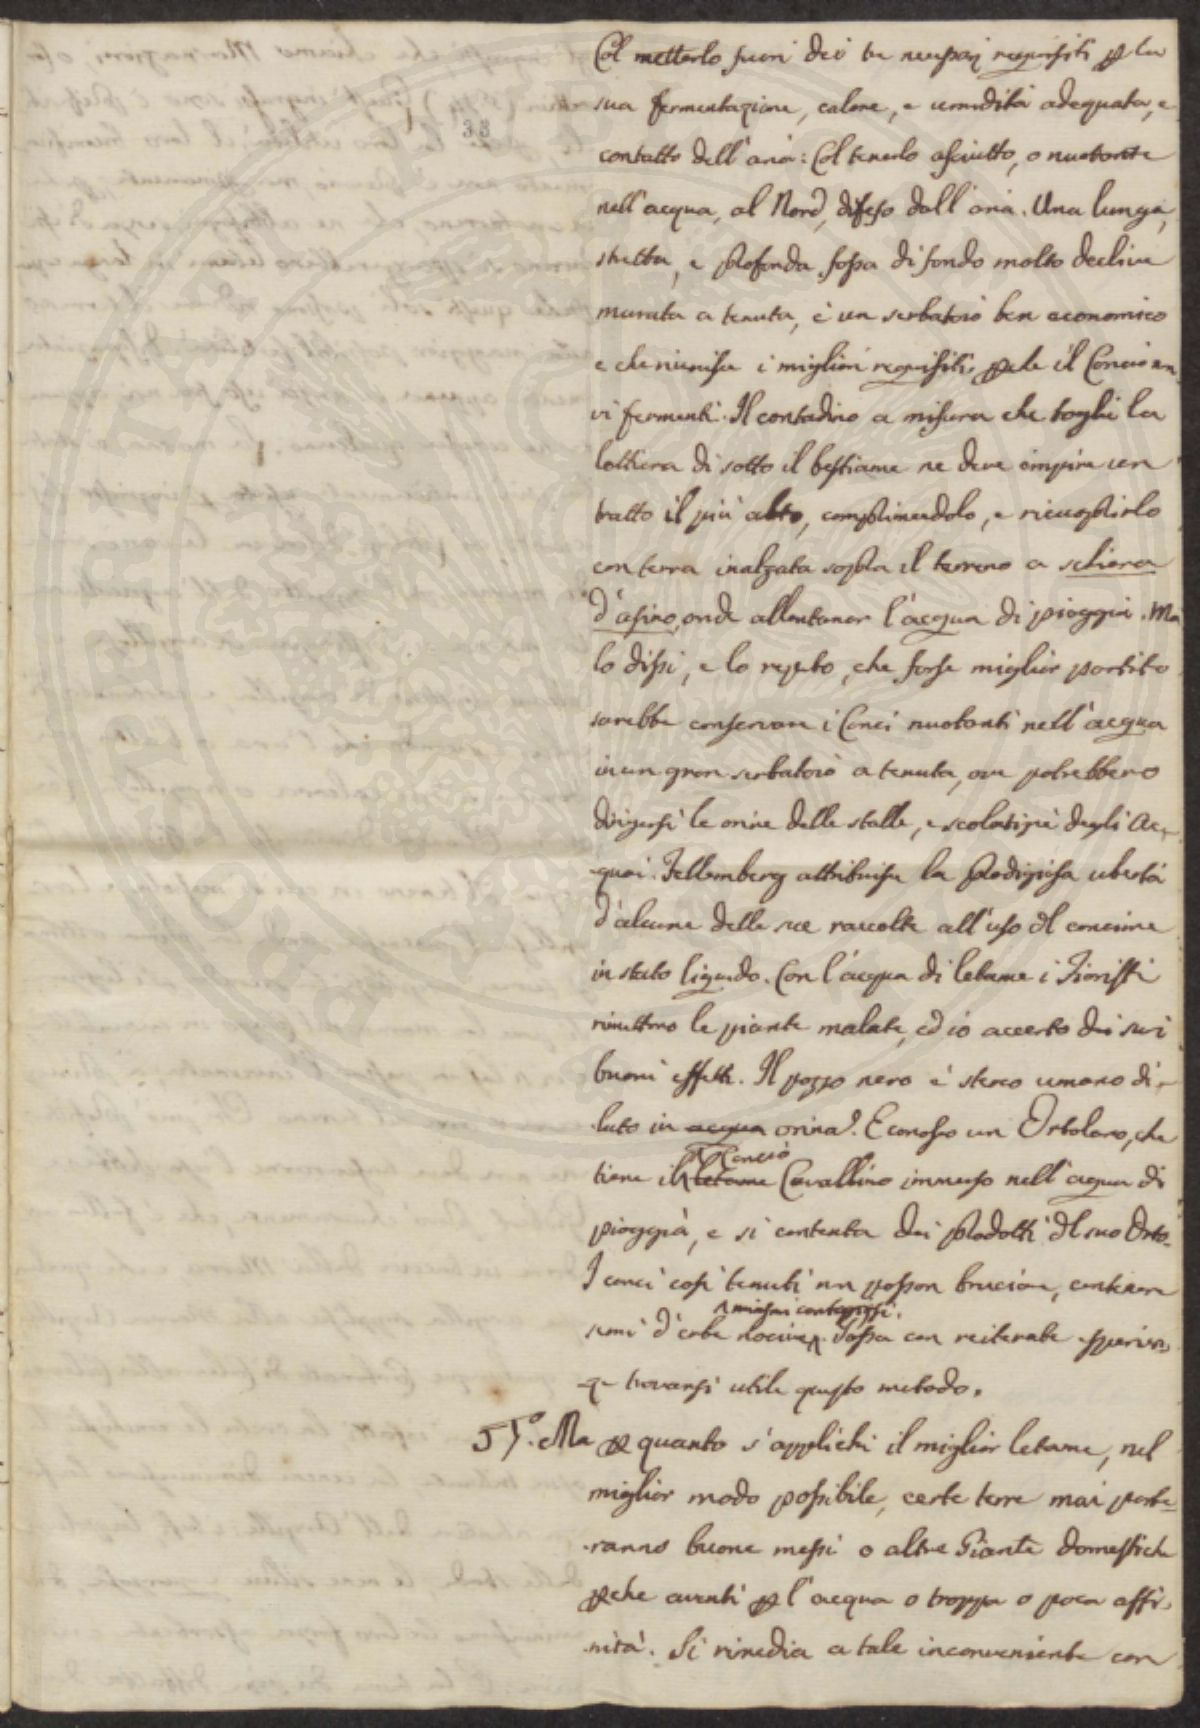 33
Col metterlo fuori dei tre necessarj requisiti p la
sua fermentazione, calore, e umidità adeguata, e
contatto dell'aria: Col tenerlo asciutto, o nuotante
nell'acqua, al Nord, difeso dall'aria. Una lunga,
stretta, e profonda fossa di fondo molto declive
murata a tenuta, è un serbatoio ben economico
e che riunisce i migliori requisiti, pche il Concio non
vi fermenti. Il contadino a misura che toglie la
lettiera di sotto il bestiame ne deve empire un
tratto il più alto, comprimendolo, e ricuoprirlo
con terra inalzata sopra il terreno a schiena
d'asino, onde allontanar l'acqua di pioggia. Ma
lo dissi, e lo repeto, che forse miglior partito
sarebbe conservare i Conci nuotanti nell'acqua
in un gran serbatoio a tenuta, ove potrebbero
dirigersi le orine delle stalle, e scolaticci degli Ac-
quai. Fellemberg attribuisce la prodigiosa ubertà
d'alcune delle sue raccolte all'uso del concime
in stato liquido. Con l'acqua di letame i Fioristi
rimettono le piante malate, ed io accerto dei suoi
buoni effetti. Il pozzo nero è sterco umano di-
luto in acqua orina. E conosco un Ortolano, che
Concio
tiene il letame Cavallino immerso nell'acqua di
pioggia, e si contenta dei prodotti del suo Orto.
I conci così tenuti non posson bruciare, contenere
miasmi contagiosi.
semi d'erbe nocive. Possa con reiterate esperien-
ze trovarsi utile questo metodo.
55.° Ma p quanto s'applichi il miglior letame, nel
miglior modo possibile, certe terre mai porte-
ranno buone messi o altre Piante domestiche
pche aventi p l'acqua o troppa o poca affi-
nità. Si rimedia a tale inconveniente con